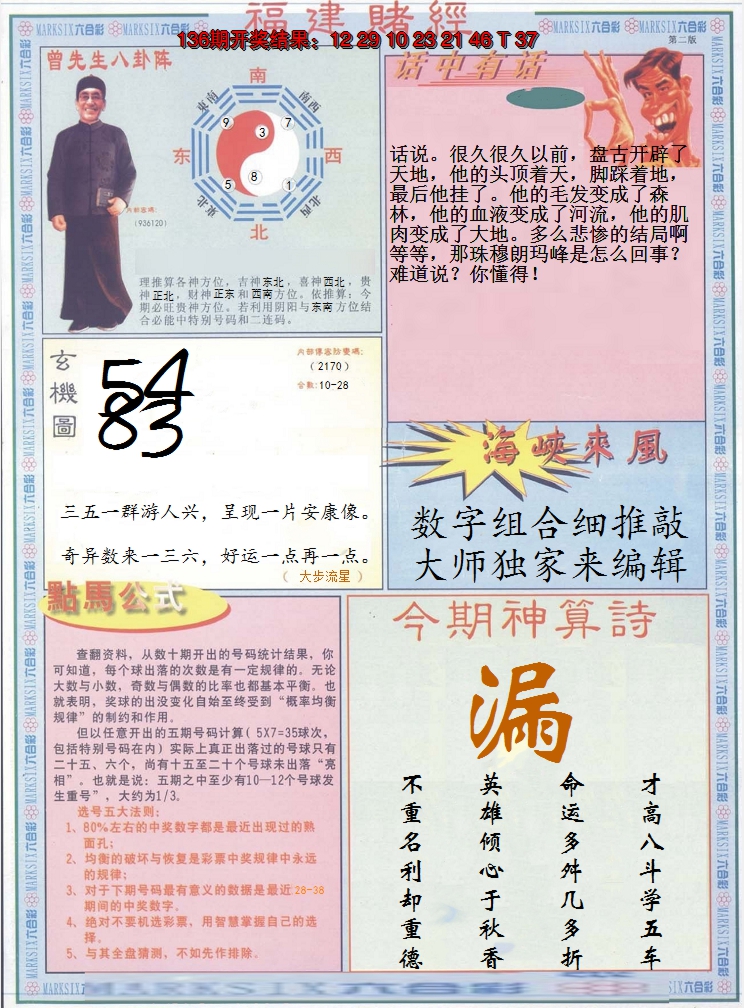 福建賭經
136期开奖结果：12 29 10 23 21 46 T 37
第二版
MARKSIX六合彩
曾先生八卦阵
南
东南
南西
9
3
7
东
西
5
8
1
東北
北西
北
内部密碼:
（936120）
理推算各神方位，吉神东北，喜神西北，贵
神正北，财神正东和西南方位。依推算：今
期必旺贵神方位。若利用阴阳与东南方位结
合必能中特别号码和二连码。
话中有话
话说。很久很久以前，盘古开辟了
天地，他的头顶着天，脚踩着地，
最后他挂了。他的毛发变成了森
林，他的血液变成了河流，他的肌
肉变成了大地。多么悲惨的结局啊
等等，那珠穆朗玛峰是怎么回事？
难道说？你懂得！
玄機圖
54
83
（2170）
合数:10-28
三五一群游人兴，呈现一片安康像。
奇异数来一三六，好运一点再一点。
（ 大步流星 ）
海峽來風
数字组合细推敲
大师独家来编辑
點馬公式
查翻资料，从数十期开出的号码统计结果，你
可知道，每个球出落的次数是有一定规律的。无论
大数与小数，奇数与偶数的比率也都基本平衡。也
就表明，奖球的出没变化自始至终受到“概率均衡
规律”的制约和作用。
但以任意开出的五期号码计算（5X7=35球次，
包括特别号码在内）实际上真正出落过的号球只有
二十五、六个，尚有十五至二十个号球未出落“亮
相”。也就是说：五期之中至少有10—12个号球发
生重号”，大约为1/3。
选号五大法则:
1、80%左右的中奖数字都是最近出现过的熟
面孔;
2、均衡的破坏与恢复是彩票中奖规律中永远
的规律;
3、对于下期号码最有意义的数据是最近28-38
期间的中奖数字。
4、绝对不要机选彩票，用智慧掌握自己的选
择。
5、与其全盘猜测，不如先作排除。
今期神算詩
漏
才高八斗学五车
命运多舛几多折
英雄倾心于秋香
不重名利却重德